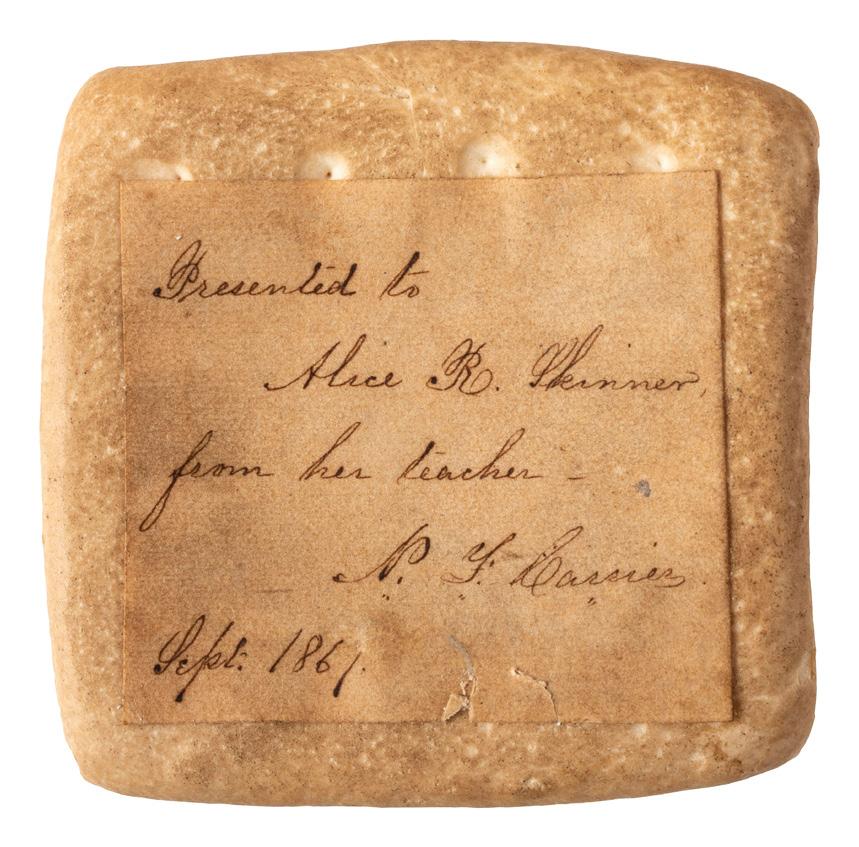 Presented to
Alice R. Skinner,
from her teacher -
N. F.
Sept. 1861.